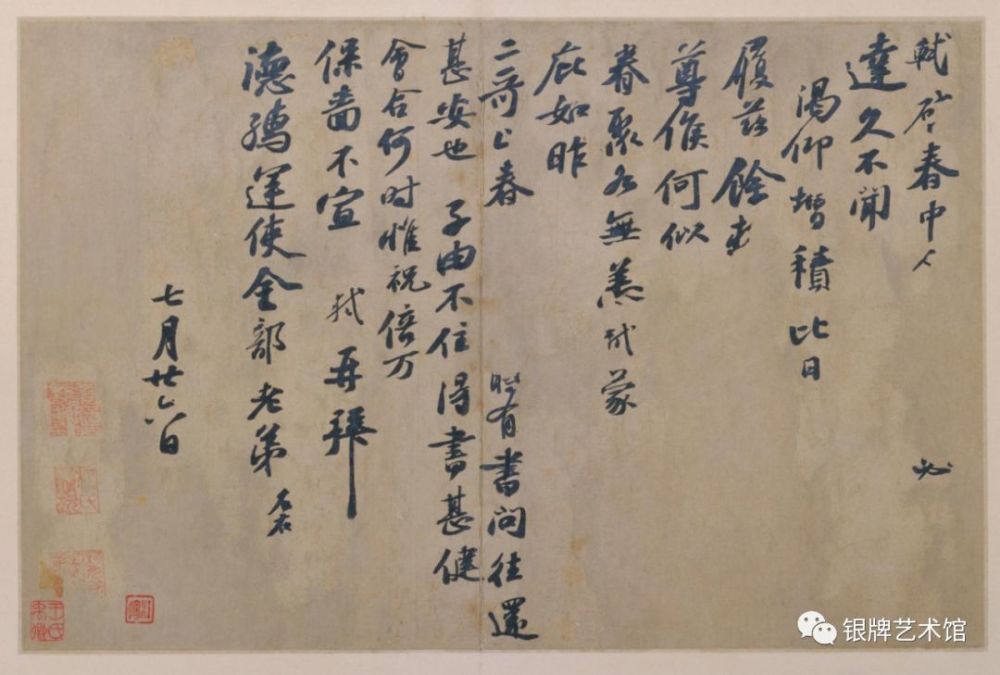 軾啓春中人必
達久不聞
渴仰增積比日
履茲餘
尊候何似
眷聚各無恙軾蒙
庇如昨
二哥上春時有書問往還
甚安也子由不住得書甚健
會合何時惟祝倍万
保嗇不宣軾再拜
德孺運使金部老弟
七月廿六日
银牌艺术馆